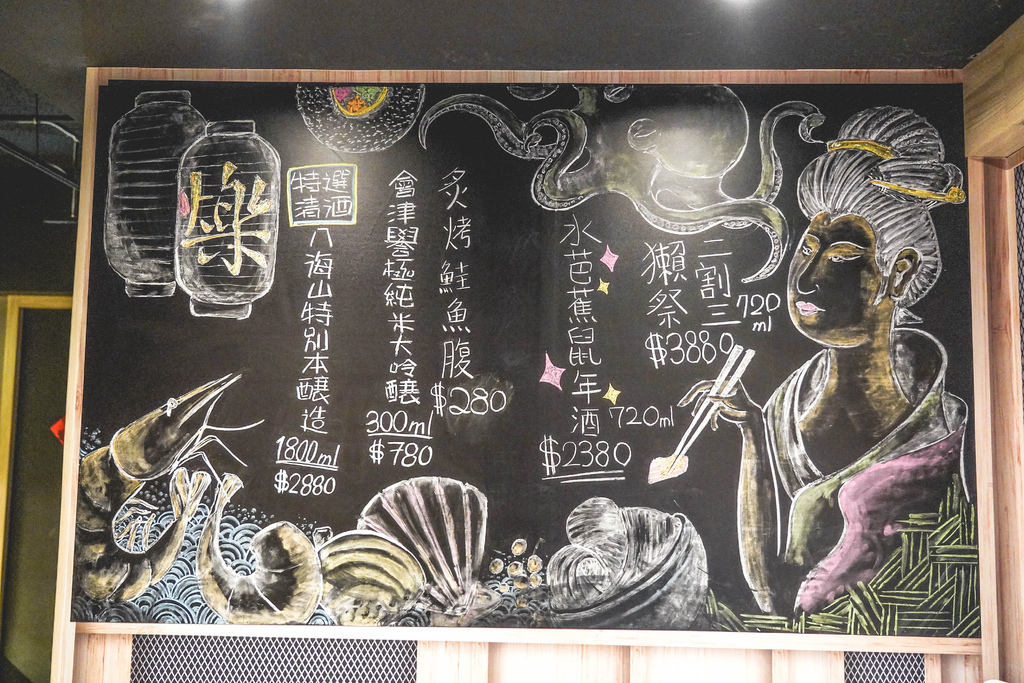 樂
特選
清酒
八海山特別本釀造
1800ml
$2880
會津譽極純米大吟釀
300ml
$780
炙烤鮭魚腹
$280
水芭蕉鼠年酒
720ml
$2380
獺祭
二割三
720
ml
$3880